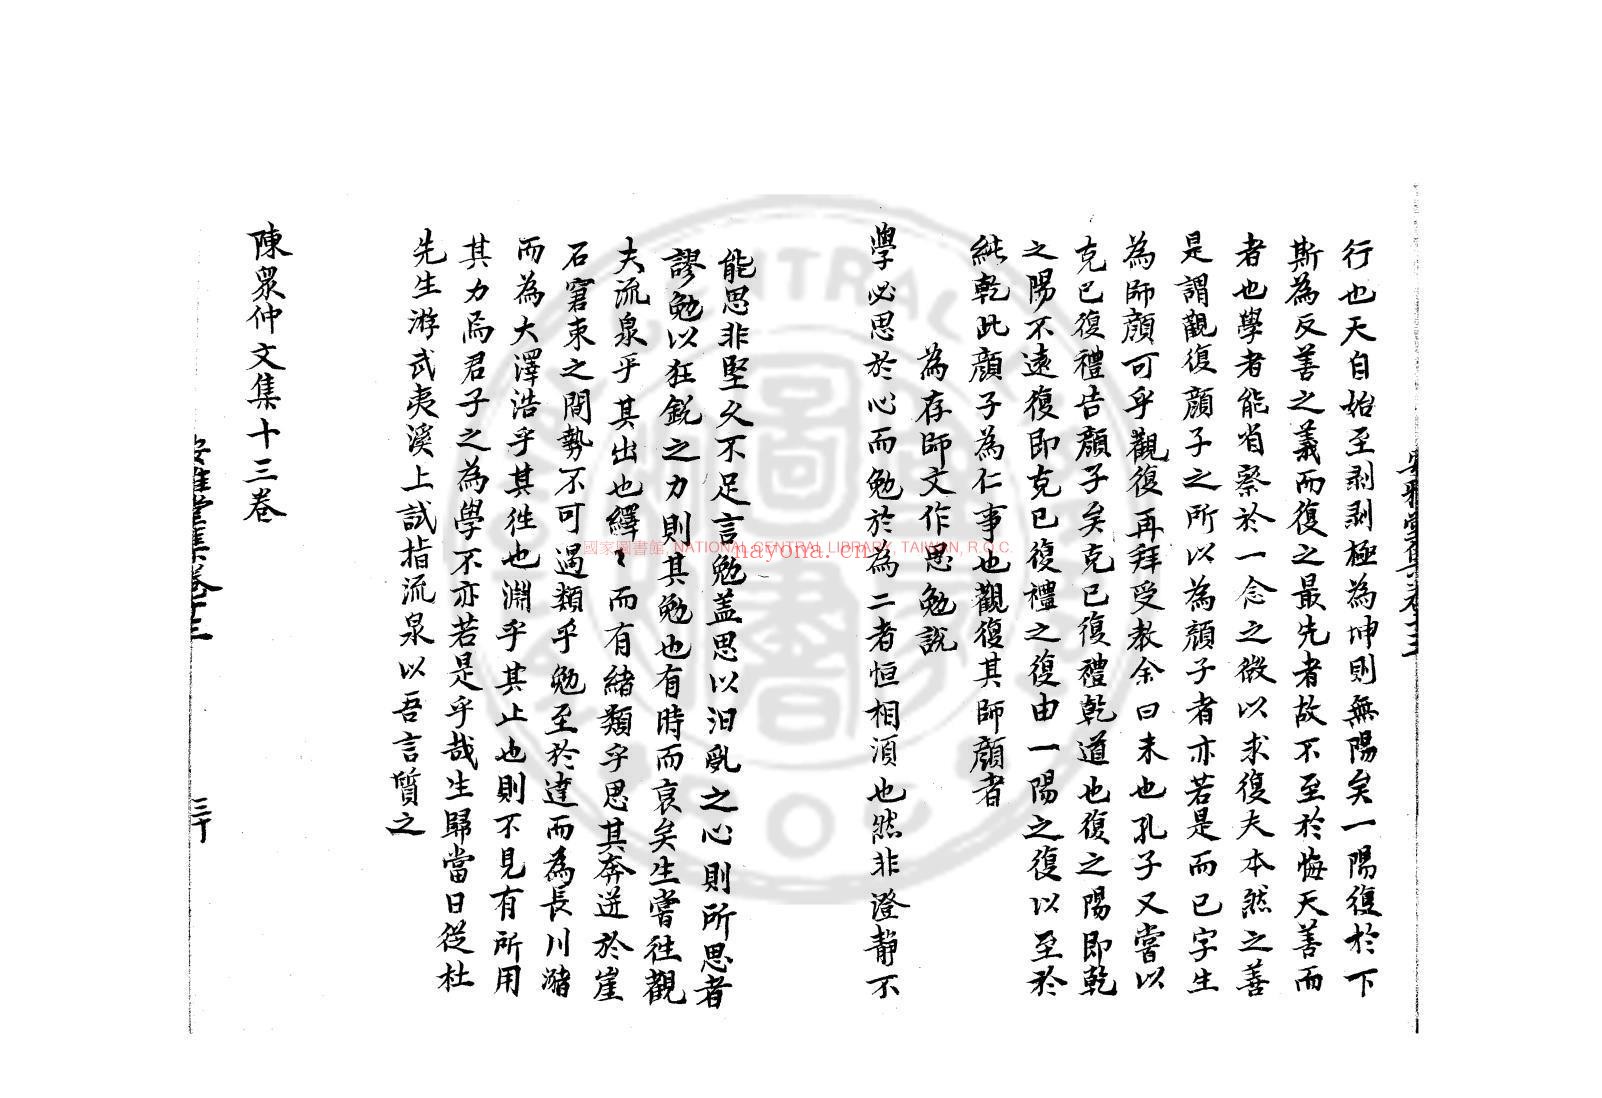 行也天自始至剥剥極為坤則無陽矣一陽復於下
斯為反善之義而復之最先者故不至於悔天善而
者也學者能省察於一念之微以求復夫本然之善
是謂觀復顔子之所以為顔子者亦若是而已字生
為師顔可乎觀復再拜受教余曰未也孔子又嘗以
克己復禮告顔子矣克己復禮乾道也復之陽即乾
之陽不遠復即克己復禮之復由一陽之復以至於
純乾此顔子為仁事也觀復其師顔者
為存師文作思勉說
學必思於心而勉於為二者恒相湏也然非澄靜不
能思非堅久不足言勉盖思以汩亂之心則所思者
謬勉以狂銳之力則其勉也有時而衰矣生嘗往觀
夫流泉乎其出也繹〻而有緒類乎思其奔迸於崖
石窘束之間勢不可遏類乎勉至於達而為長川瀦
而為大澤浩乎其徃也淵乎其止也則不見有所用
其力焉君子之為學不亦若是乎哉生歸當日從杜
先生游武夷溪上試指流泉以吾言質之
陳衆仲文集十三卷
安雅堂集卷十三
三十
國家圖書館, NATIONAL CENTRAL LIBRARY, TAIWAN, R.O.C.
nayona.cn